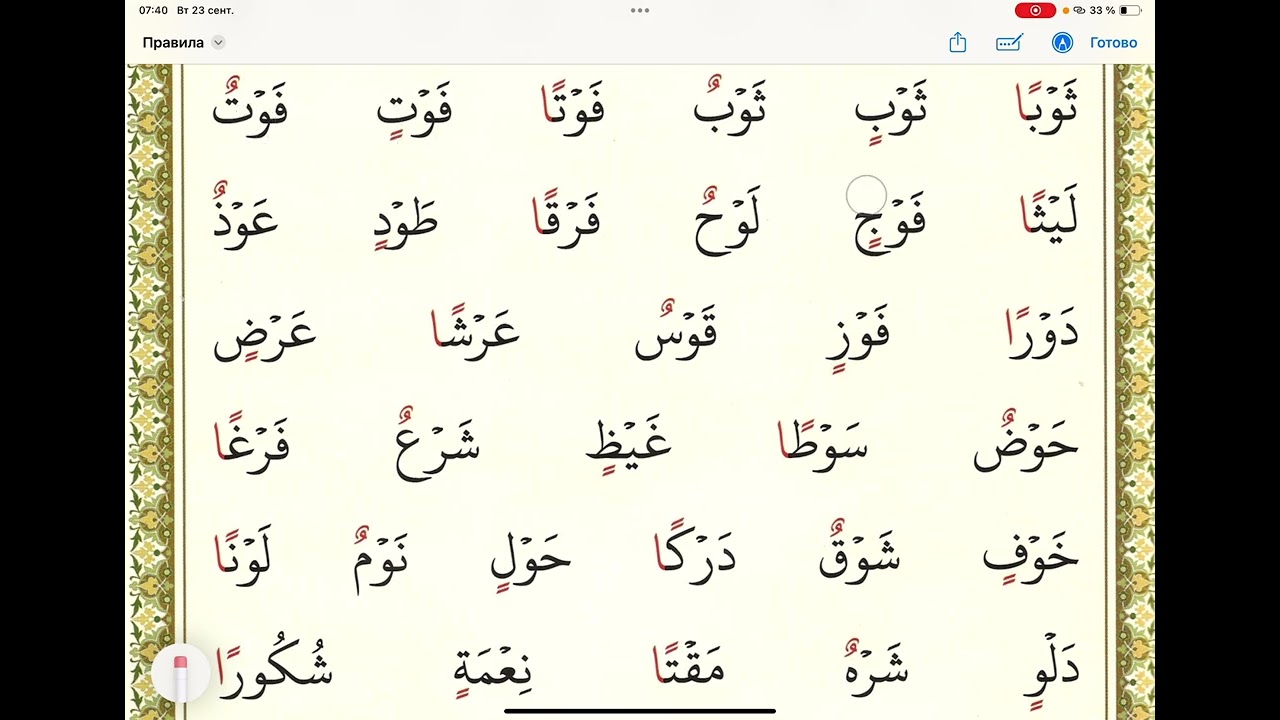 07:40 Вт 23 сент. 33 %
Правила Готово
ثَوْبًا ثَوْبٍ ثَوْبٌ فَوْتًا فَوْتٍ فَوْتٌ
لَيْثًا فَوْجٍ لَوْحٌ فَرْقًا طَوْدٍ عَوْذٌ
دَوْرًا فَوْزٍ قَوْسٌ عَرْشًا عَرْضٍ
حَوْضٌ سَوْطًا غَيْظٍ شَرْعٌ فَرْغًا
خَوْفٍ شَوْقٌ دَرْكًا حَوْلٍ نَوْمٌ لَوْنًا
دَلْوٍ شَرْهٌ مَقْتًا نِعْمَةٍ شُكُورًا